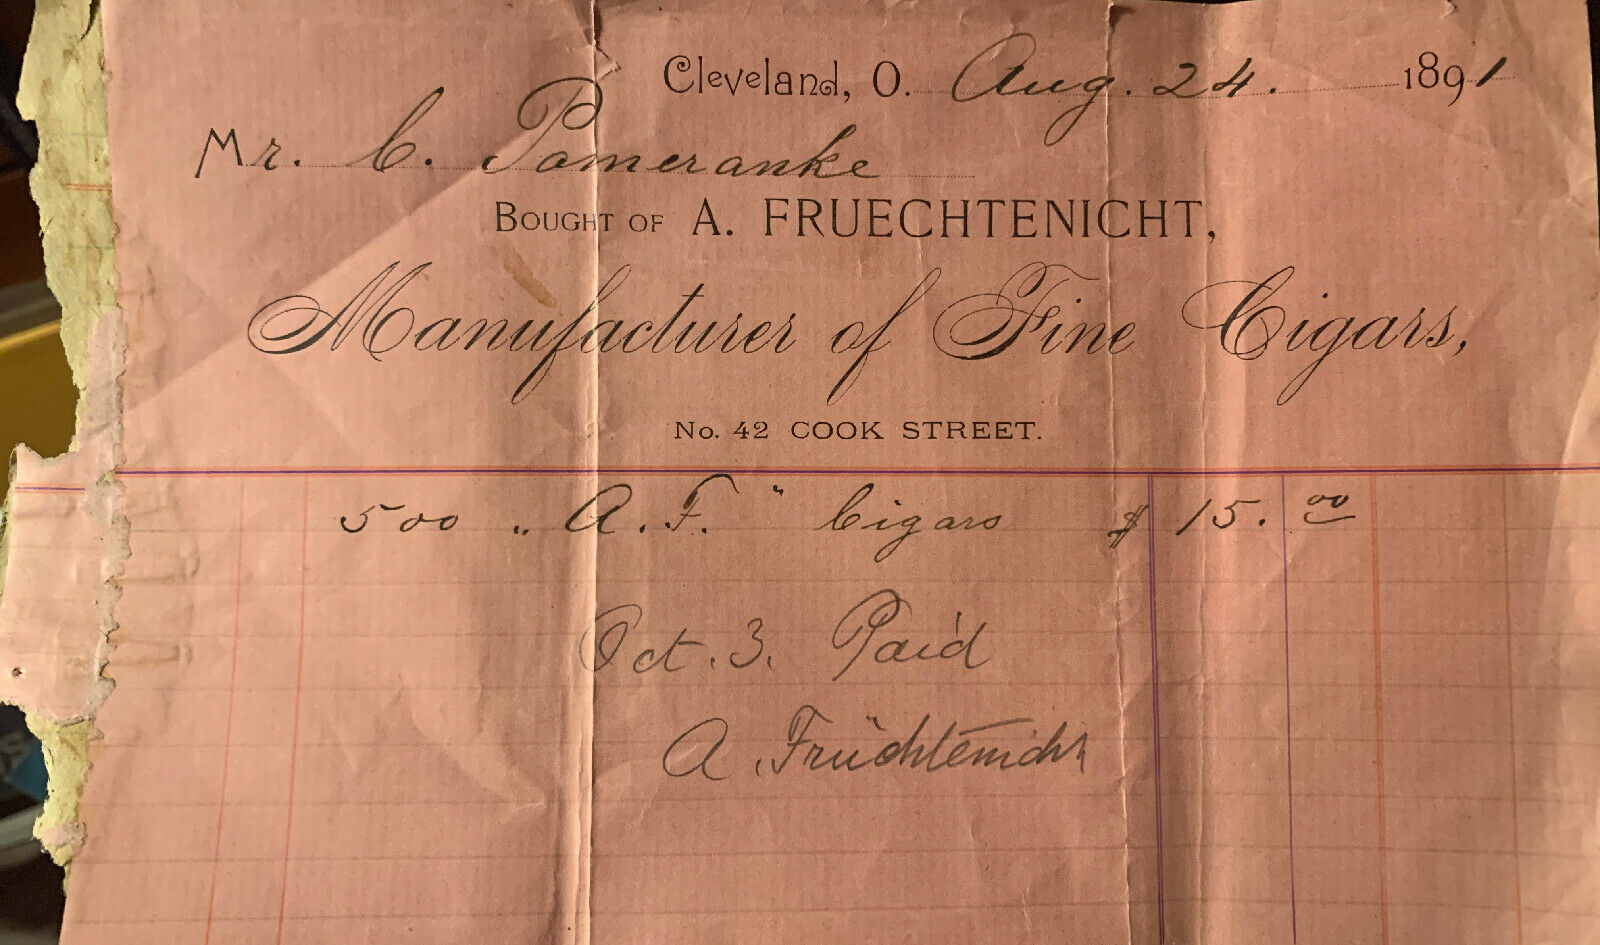 Cleveland, O. Aug. 24. 1891
Mr. C. Pomeranke
BOUGHT OF A. FRUECHTENICHT,
Manufacturer of Fine Cigars,
No. 42 COOK STREET.
500 „ A. F. " Cigars $ 15. 00
Oct. 3. Paid
A. Früchtenicht